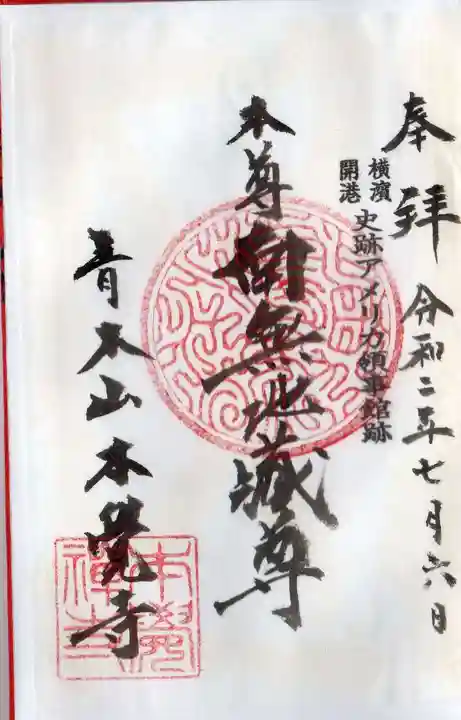 奉拝 令和二年七月六日
横濱
開港
史跡アメリカ領事館跡
本尊 南無地蔵尊
青木山本覺寺
本覺禅寺